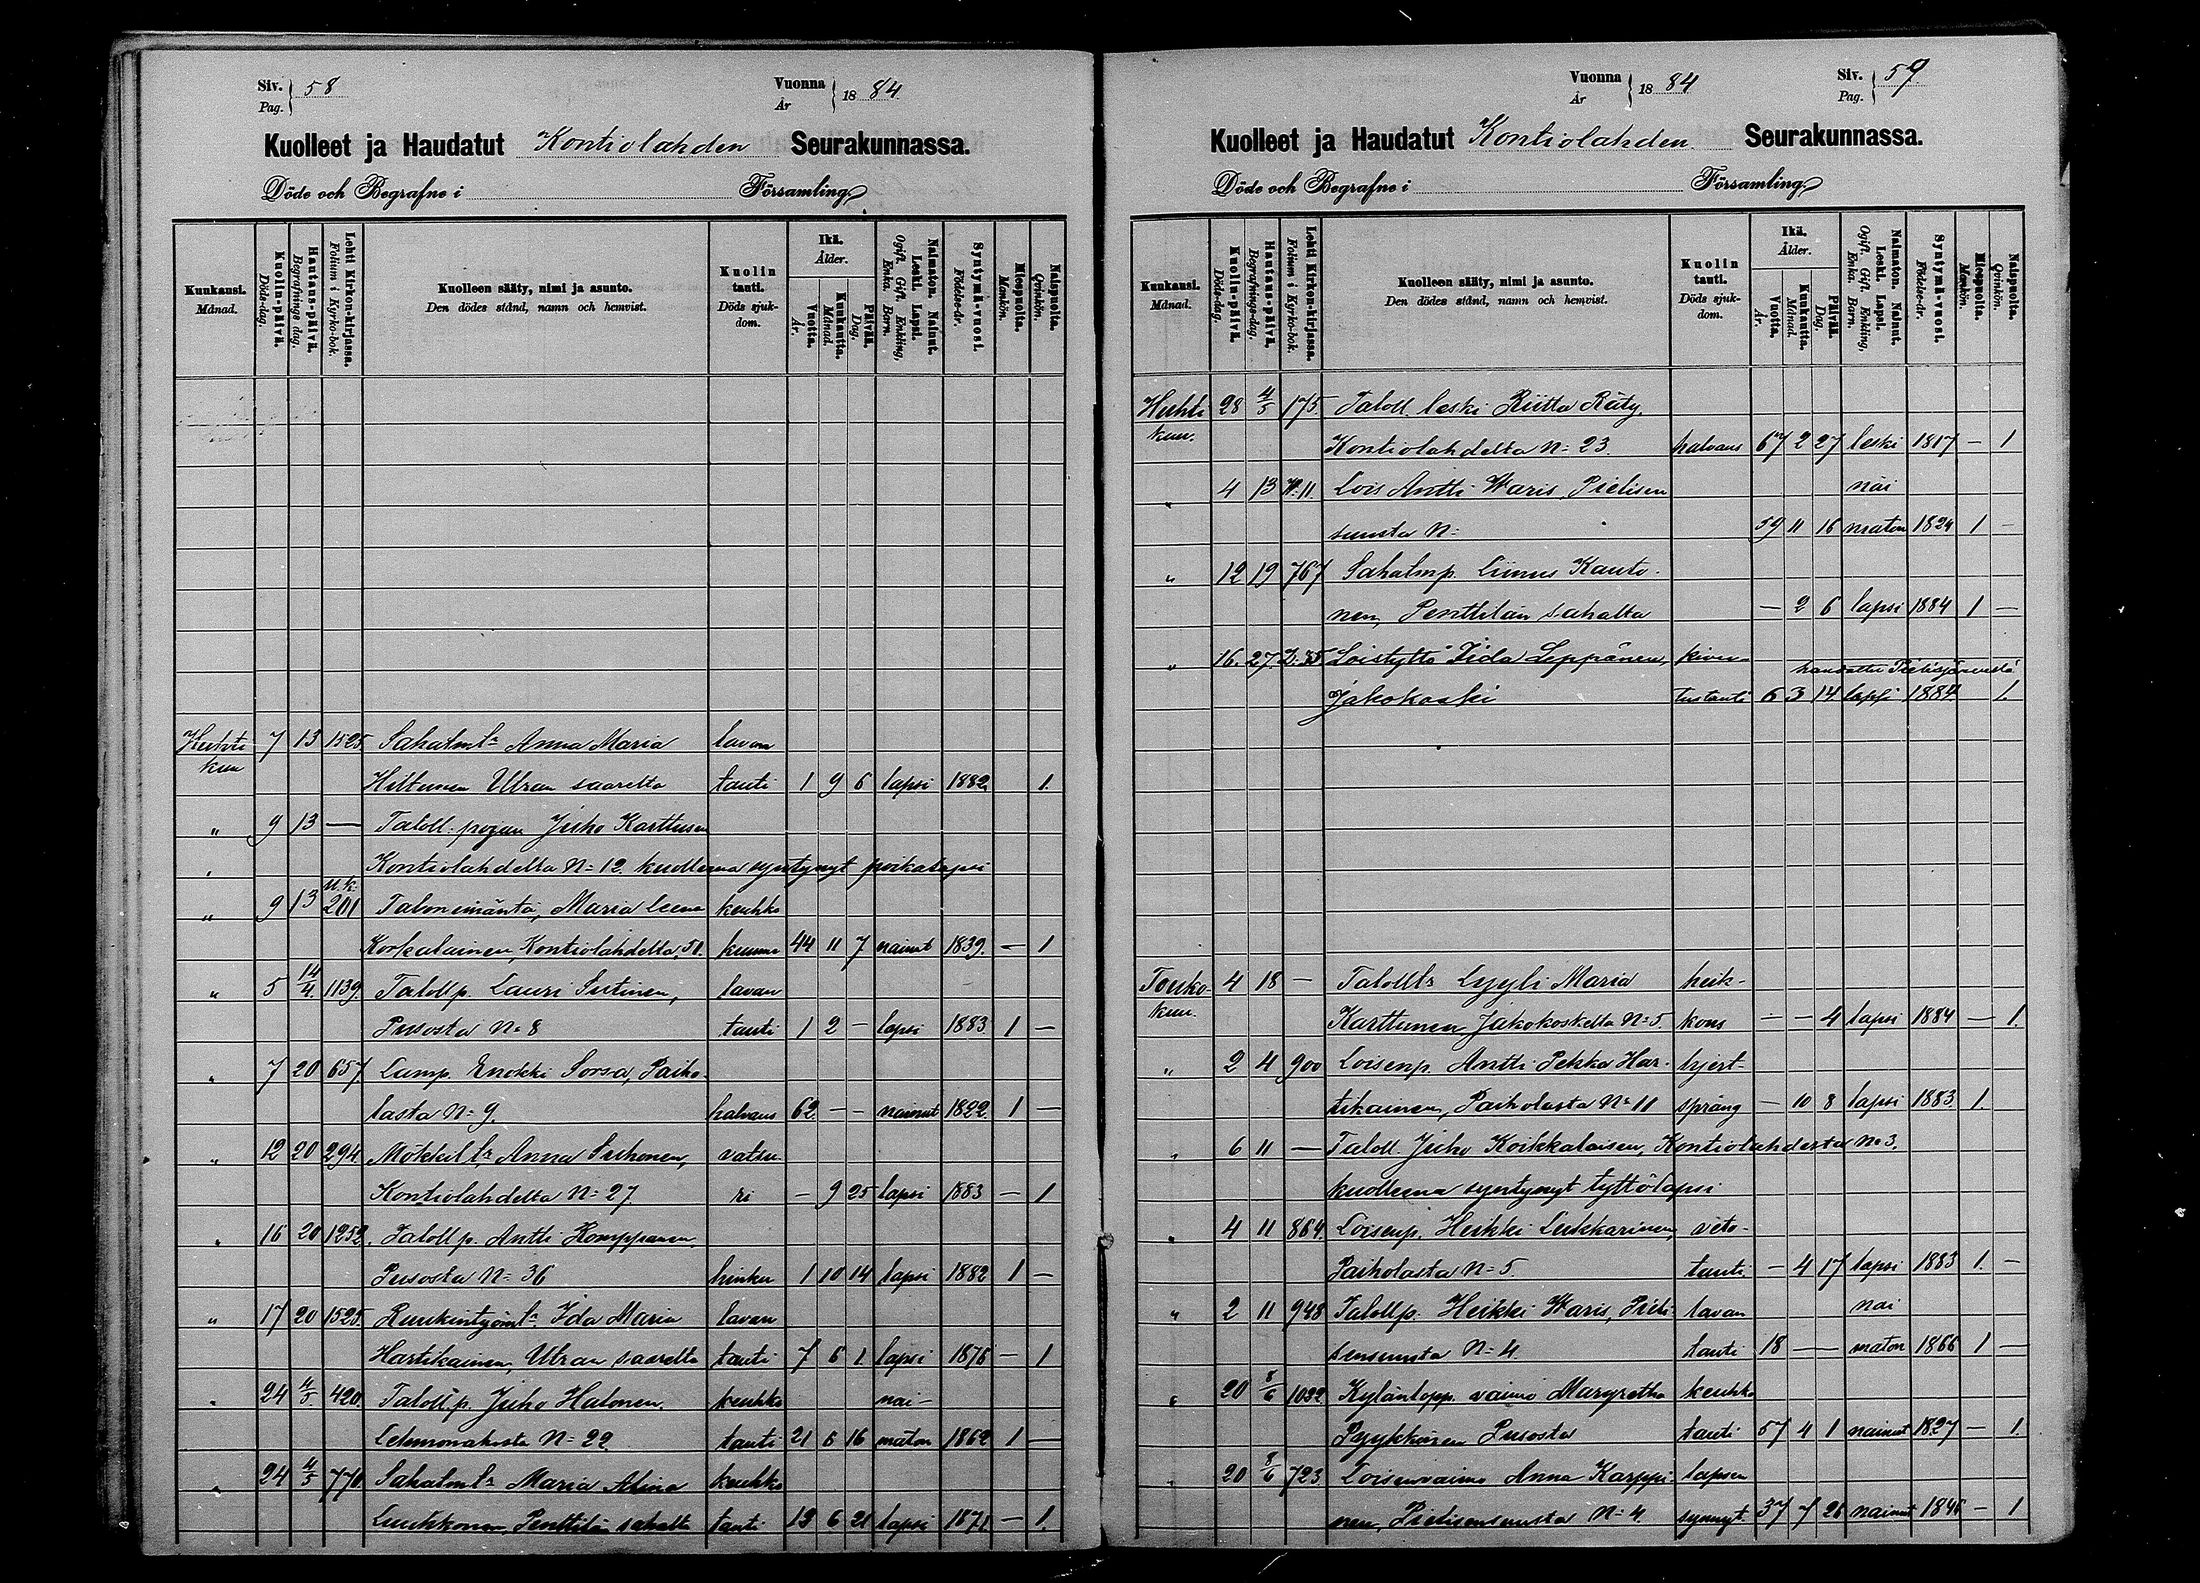 Siv. Pag. 58
Vuonna År 1884
Kuolleet ja Haudatut Kontiolahden Seurakunnassa.
Döde och Begrafne i Församling
Kuukausi. Månad.
Kuolin-päivä. Döds-dag.
Hautaus-päivä. Begrafnings-dag.
Lehti Kirkon-kirjassa. Folium i Kyrko-bok.
Kuolleen sääty, nimi ja asunto. Den dödes stånd, namn och hemvist.
Kuolin tauti. Döds sjuk-dom.
Ikä. Ålder.
Vuotta. År.
Kuukautta. Månad.
Päivää. Dag.
Naimaton. Nainut. Leski. Lapsi. Ogift. Gift. Enkling, Enka. Barn.
Syntymä-vuosi. Födelse-år.
Miespuolta. Mankön.
Naispuolta. Qvinkön.
Huhti 7 13 1525 Sahatm lr Anna Maria lavan
kuu Hiltunen Utran saarelta tauti 1 9 6 lapsi 1882 1.
" 9 13 — Taloll. pojan Juho Karttusen
" Kontiolahdelta N= 12 kuolleena syntynyt poikalapsi
" 9 13 u.k. 201 Talonemäntä, Maria Leena keuhko
Korkalainen, Kontiolahdelta, 50. kuume 44 11 7 nainut 1839. — 1
" 5 14/4. 1139. Taloll p. Lauri Sutinen, lavan
Pusosta N= 8 tauti 1 2 — lapsi 1883 1 —
" 7 20 657 Lamp. Enokki Sorsa, Paiho-
lasta N= 9. halvaus 62 — — nainut 1822. 1 —
" 12 20 294 Mökkil lr Anna Suhonen, vatsu
Kontiolahdelta N= 27 ri — 9 25 lapsi 1883 — 1
" 16 20 1252. Taloll p. Antti Komppanen,
Pusosta N= 36 hinku 1 10 14 lapsi 1882 1 —
" 17 20 1525. Ruukintyöm lr. Ida Maria lavan
Hartikainen, Utran saarelta tauti 7 6 1 lapsi 1876 — 1
" 24 4/5. 420. Taloll. p. Juho Halonen keuhko nai-
Selemonahosta N= 22 tauti 21 6 16 maton 1862 1 —
" 24 4/5 770. Sahatm lr Maria Alina keuhko
Luukkonen Penttilän sahalta tauti 13 6 21 lapsi 1871 — 1.
Vuonna År 1884
Siv. Pag. 59
Kuolleet ja Haudatut Kontiolahden Seurakunnassa.
Döde och Begrafne i Församling
Kuukausi. Månad.
Kuolin-päivä. Döds-dag.
Hautaus-päivä. Begrafnings-dag.
Lehti Kirkon-kirjassa. Folium i Kyrko-bok.
Kuolleen sääty, nimi ja asunto. Den dödes stånd, namn och hemvist.
Kuolin tauti. Döds sjuk-dom.
Ikä. Ålder.
Vuotta. År.
Kuukautta. Månad.
Päivää. Dag.
Naimaton. Nainut. Leski. Lapsi. Ogift. Gift. Enkling, Enka. Barn.
Syntymä-vuosi. Födelse-år.
Miespuolta. Mankön.
Naispuolta. Qvinkön.
Huhti 28 4/5 175. Taloll. leski Riitta Räty,
kuu. Kontiolahdelta N= 23. halvaus 67 2 27 leski 1817 — 1
" 4 13 11 Lois Antti Waris, Pielisen näi
suusta N= 59 11 16 maton 1824 1 —
" 12 19 767 Sahatmp. Liinus Kauto-
nen, Penttilän sahalta — 2 6 lapsi 1884 1 —
" 16. 27. 35 Loistyttö Iida Leppänen, kivu- haudattu Pielisjärvellä
Jakokoski tustauti 6 3 14 lapsi 1884. 1.
Touko- 4 18 — Taloll lr Lyyli Maria heik-
kuu. Karttunen Jakokoskelta N= 5. kous — — 4 lapsi 1884 — 1.
" 2 4 900 Loisenp. Antti Pekka Har- hjert-
tikainen, Paiholasta N= 11 språng — 10 8 lapsi 1883 1.
" 6 11 — Taloll. Juho Koikkalaisen, Kontiolahdesta No 3.
kuolleena syntynyt tyttölapsi
" 4 11 864. Loisenp. Heikki Leikkarinen, veto-
Paiholasta N= 5. tauti. — 4 17 lapsi 1883 1. —
" 2 11 948 Talollp. Heikki Waris, Pieli lavan nai
sensuusta N= 4. tauti 18 — — maton 1866 1 —
" 20 8/6 1022 Kylänlopp. vaimo Margretha keuhko
Pyykkönen Pusosta tauti 57 4 1 nainut 1827 — 1.
" 20 8/6 723. Loisenvaimo Anna Karppi lapsen
nen, Pielisensuusta N= 4. synnyt. 37 7 26 nainut 1846 — 1